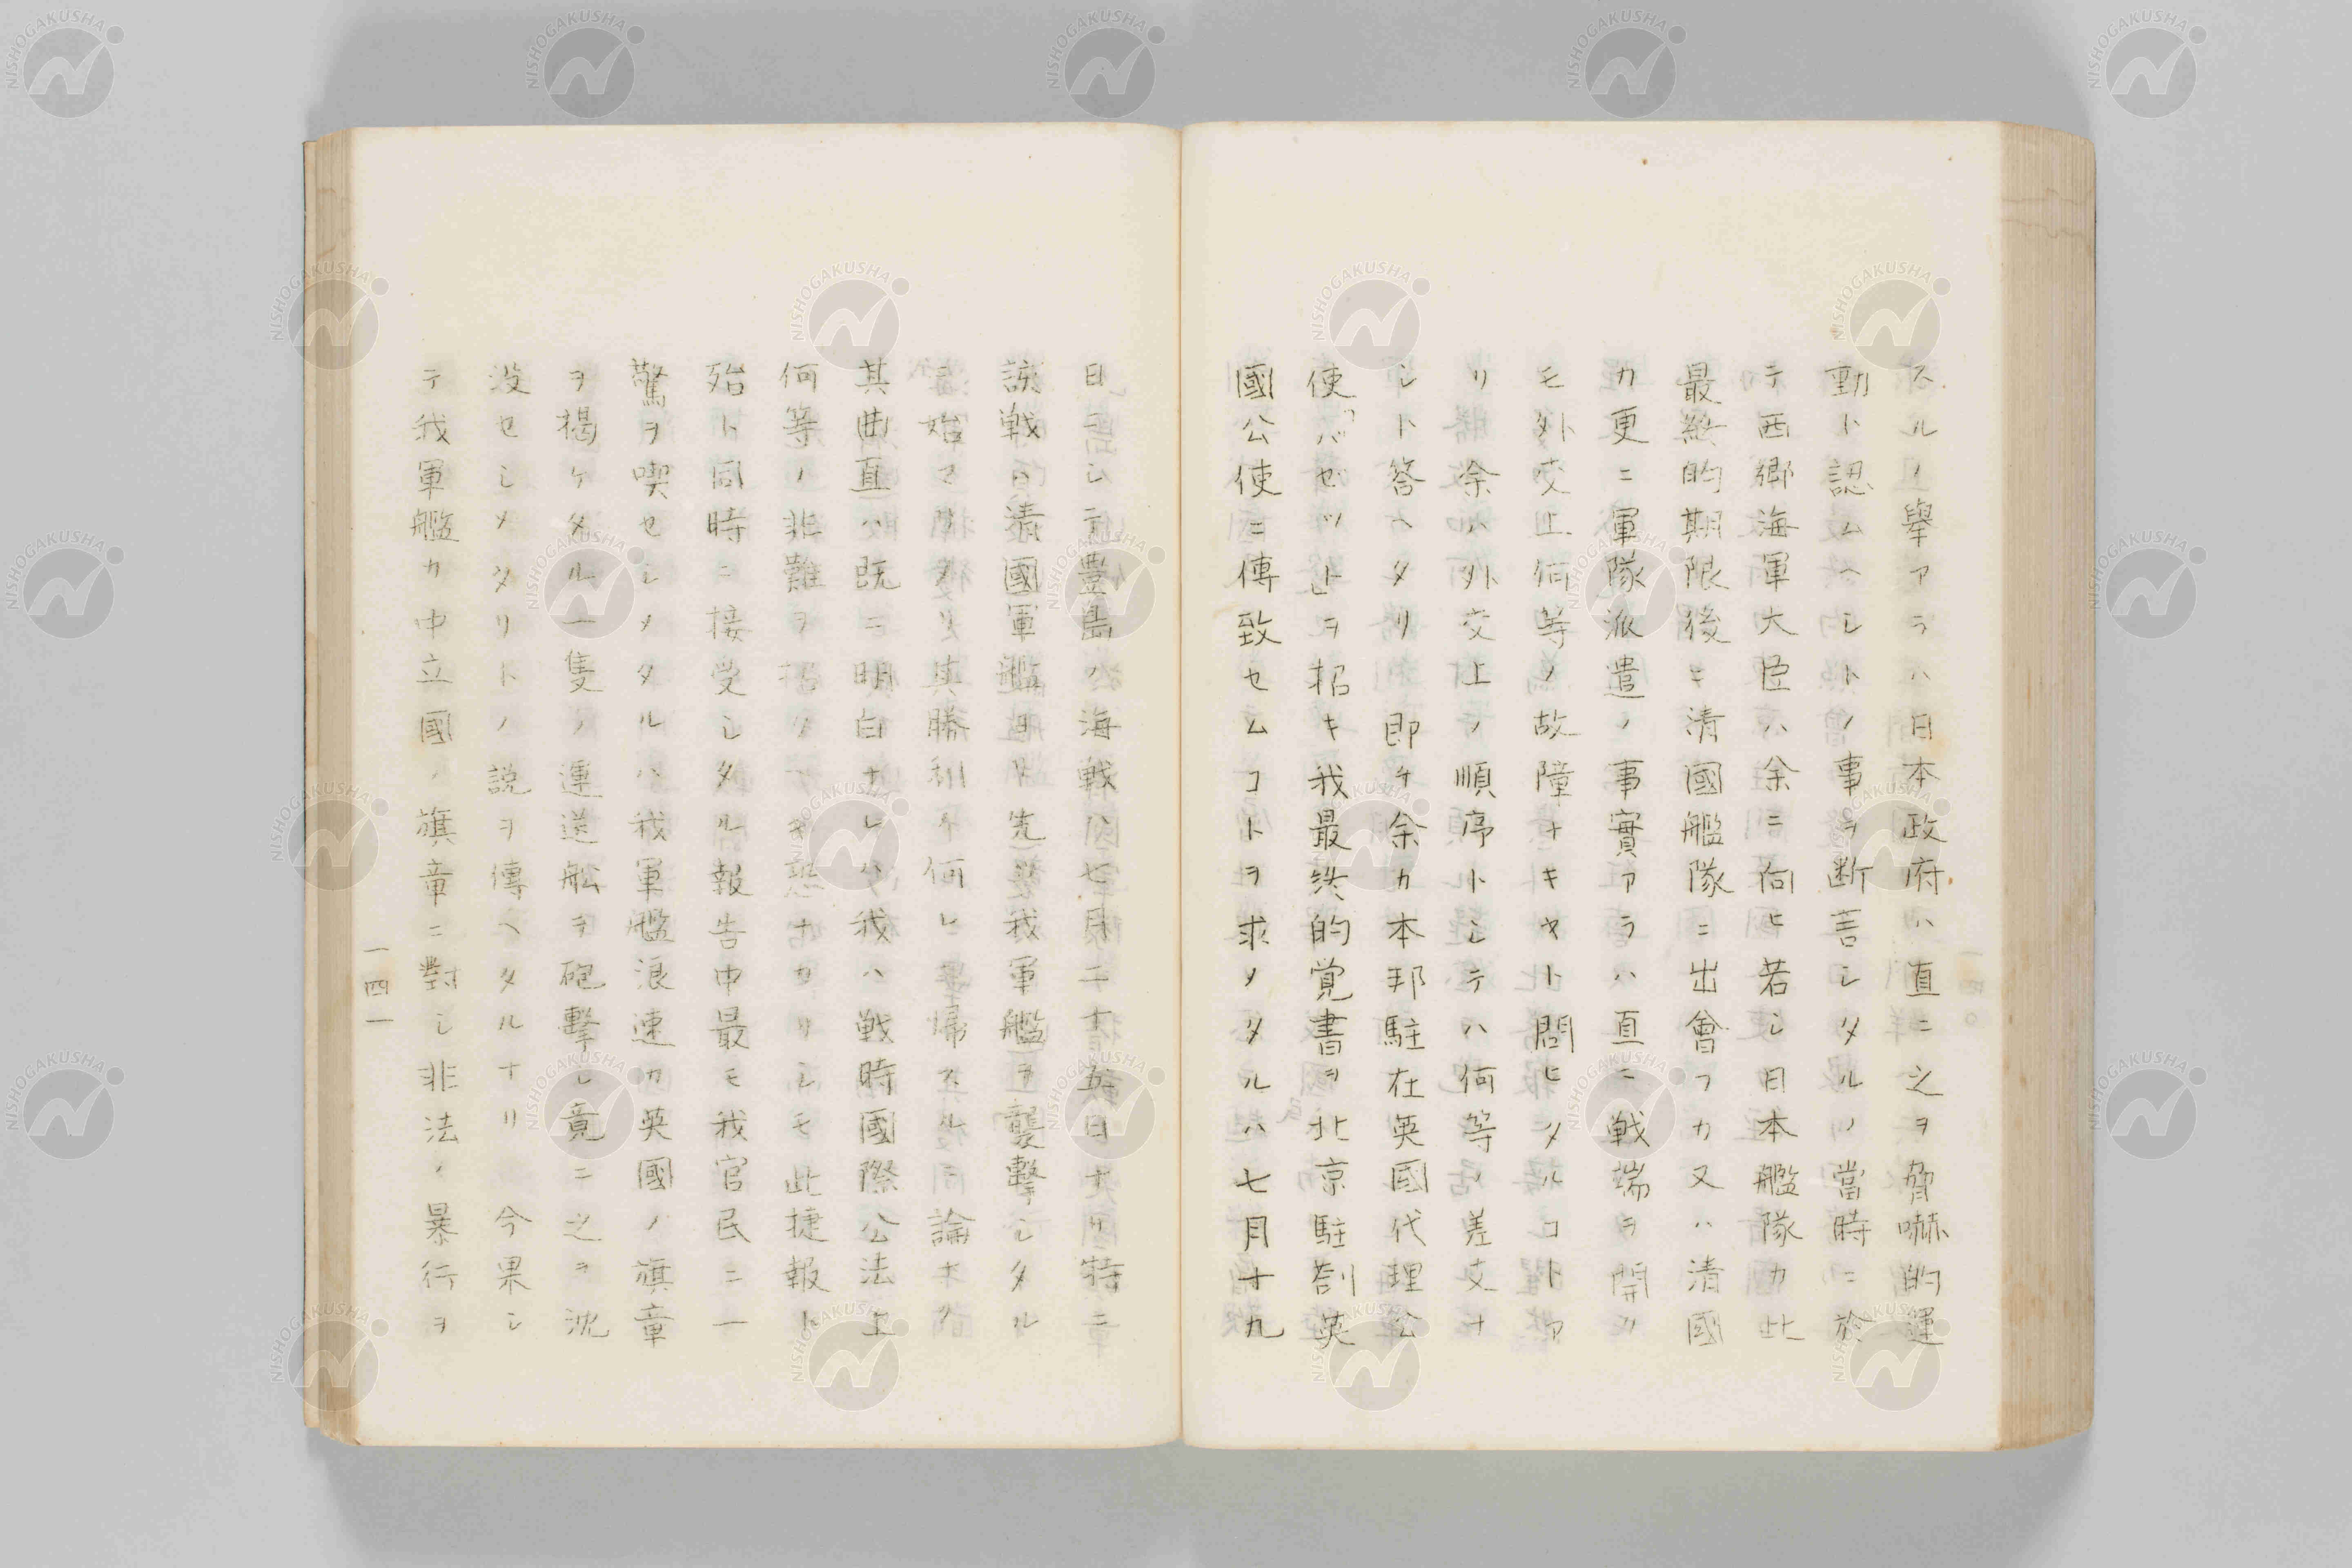 スルノ擧アラハ日本政府ハ直ニ之ヲ脅嚇的運
動ト認ムヘシトノ事ヲ断言シタルノ當時ニ於
テ西郷海軍大臣ハ余ニ向ヒ若シ日本艦隊カ此
最終的期限後ニ清國艦隊ニ出會フカ又ハ清國
カ更ニ軍隊派遣ノ事實アラハ直ニ戦端ヲ開ク
モ外交上何等ノ故障ナキヤト問ヒタルコトア
リ余ハ外交上ノ順序トシテハ何等ノ差支ナ
シト答ヘタリ即チ余カ本邦駐在英國代理公
使「パゼット」ヲ招キ我最終的覚書ヲ北京駐劄英
國公使ニ傳致セムコトヲ求メタルハ七月十九
日ニシテ豊島ノ海戦ハ七月二十五日ナリ特ニ
該戦ハ清國軍艦ヨリ先ツ我軍艦ヲ襲撃シタル
ニ始マリタリ其勝利ノ何レニ帰スルニ論ナク
其曲直ハ既ニ明白ナレハ我ハ戦時國際公法上
何等ノ非難ヲ招クヘキ患ナカリシモ此捷報ト
殆ト同時ニ接受シタル報告中最モ我官民ニ一
驚ヲ喫セシメタルハ我軍艦浪速カ英國ノ旗章
ヲ掲ケタル一隻ノ運送舩ヲ砲撃シ竟ニ之ヲ沈
没セシメタリトノ説ヲ傳ヘタルナリ今果シ
テ我軍艦カ中立國ノ旗章ニ對シ非法ノ暴行ヲ
一四一
NISHOGAKUSHA